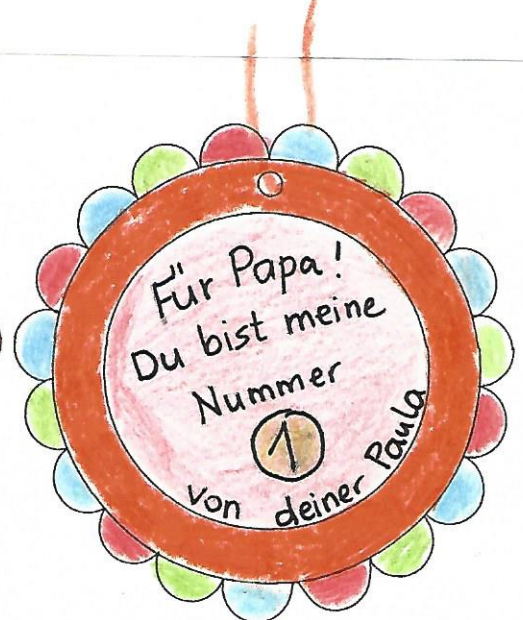 Für Papa!
Du bist meine
Nummer
1
von deiner Paula